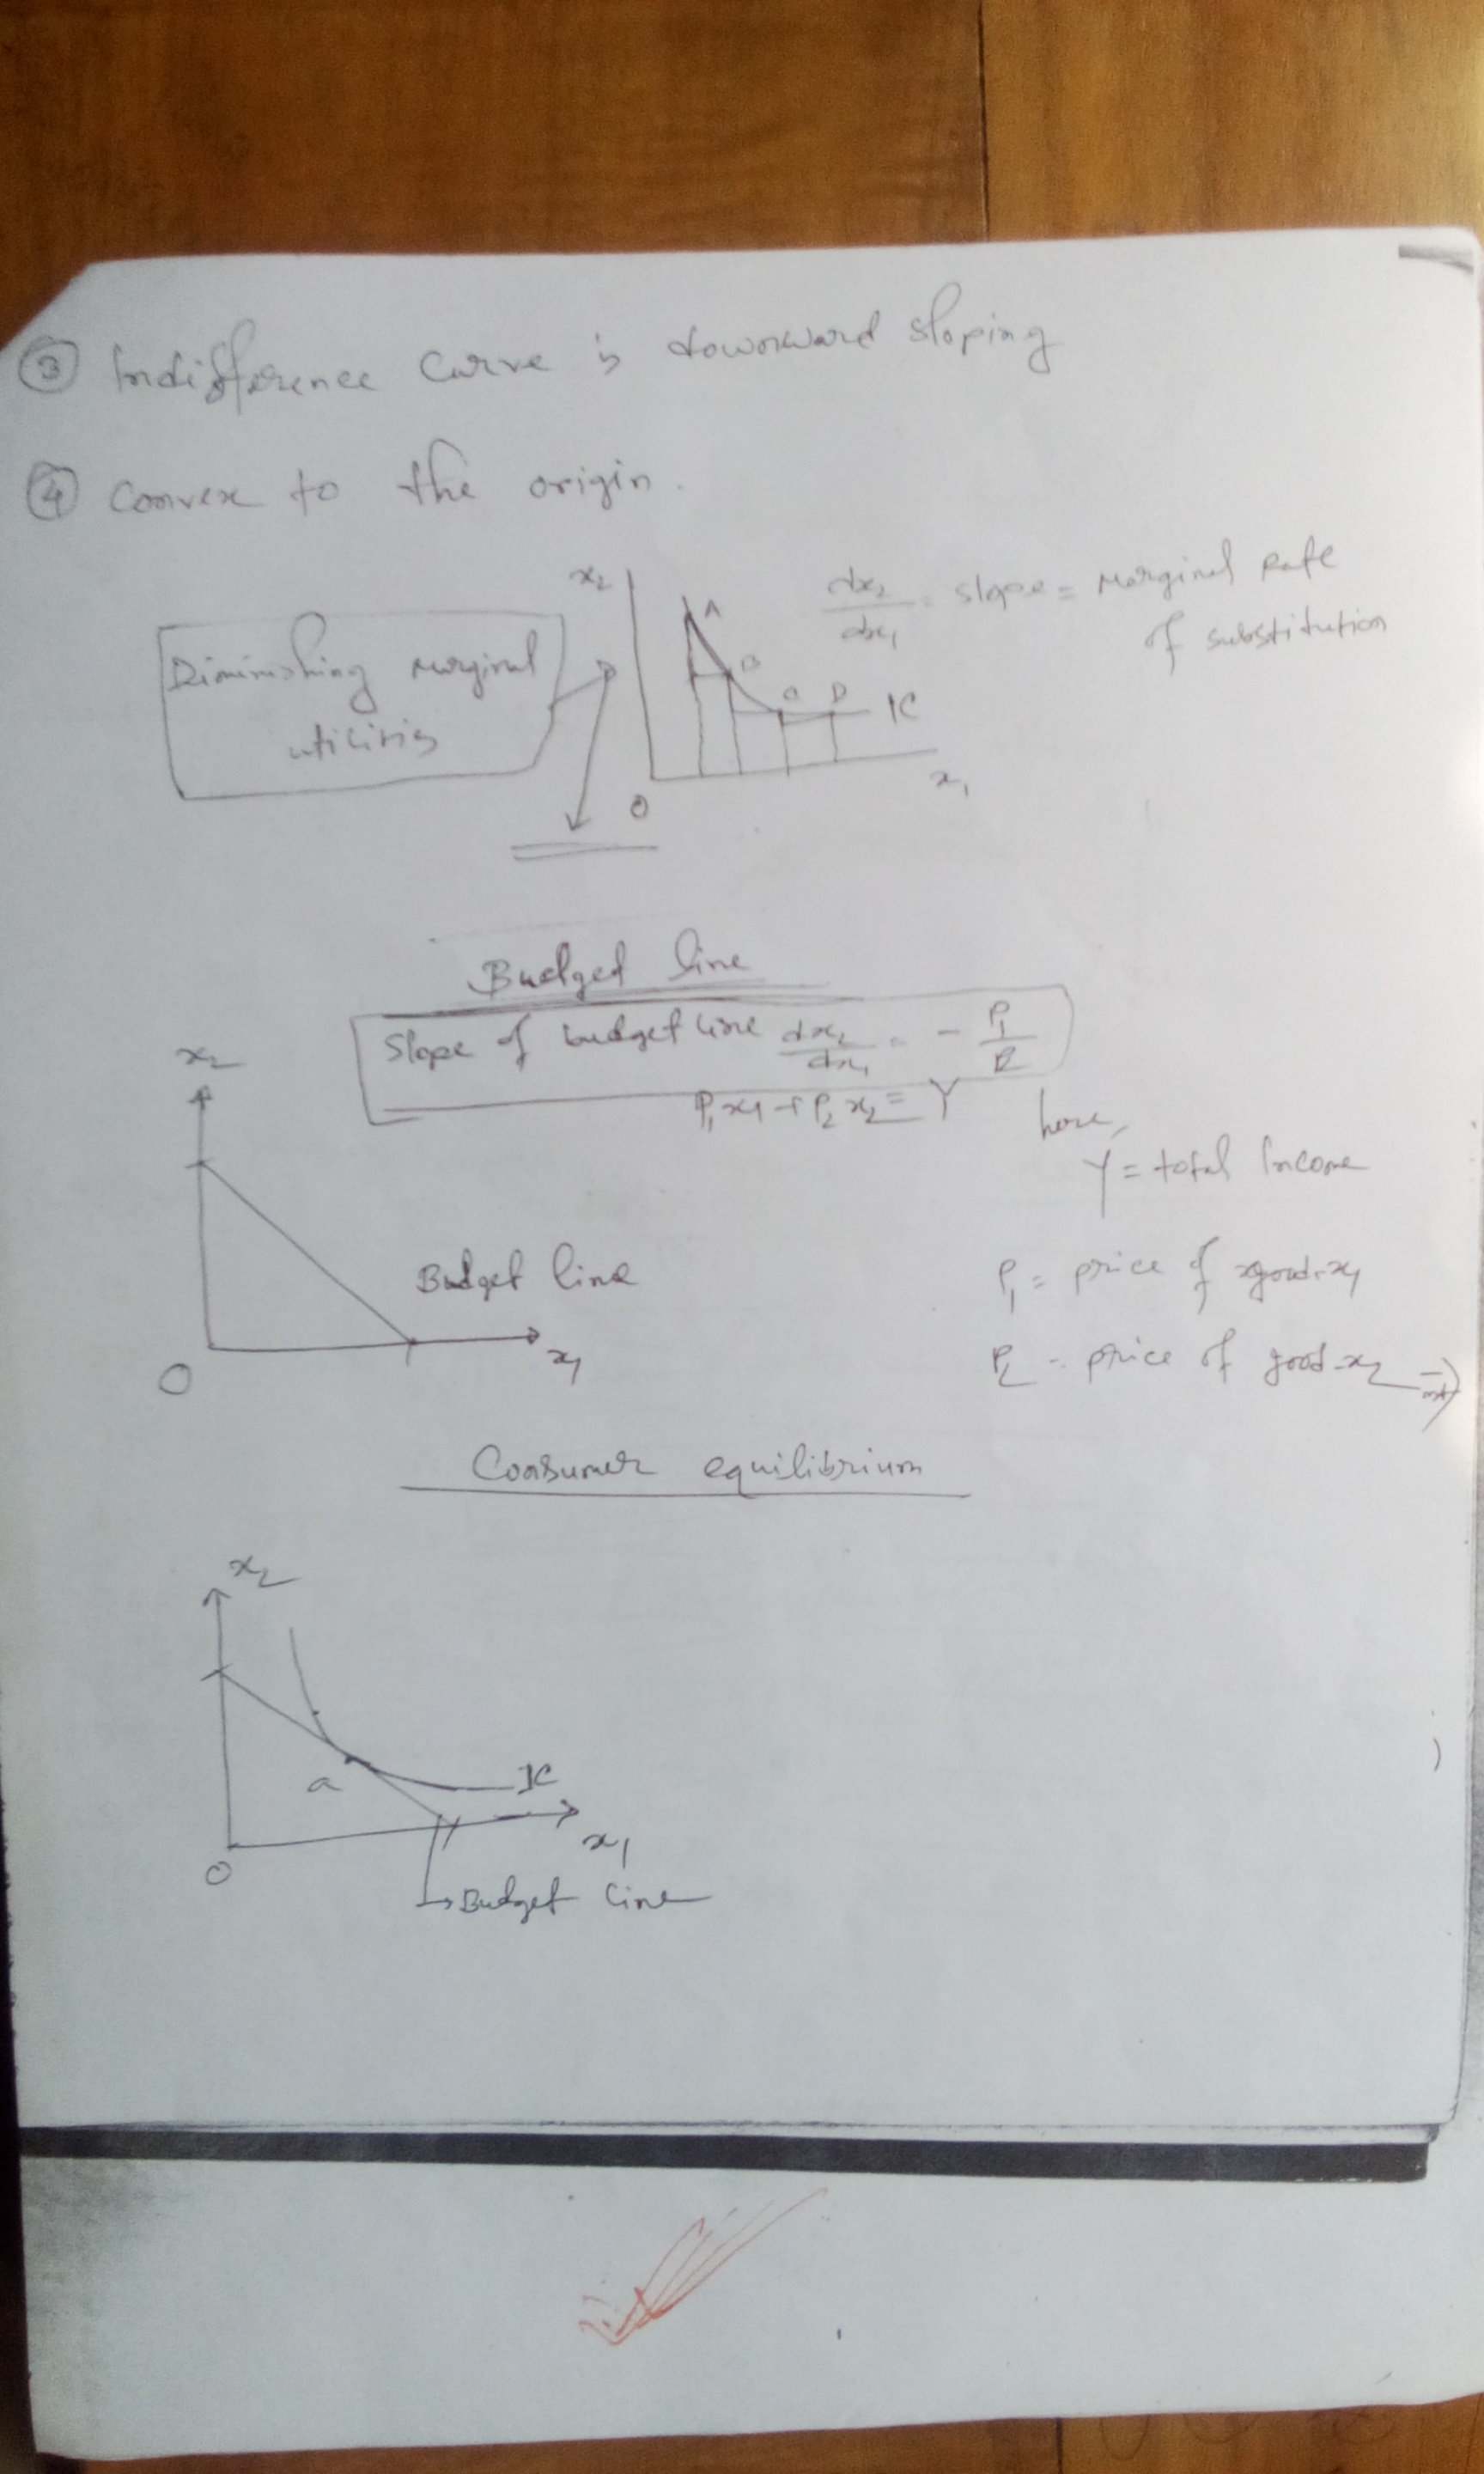 ③ Indifference Curve is downward sloping
④ Convex to the origin.
x₂
A
B
C D IC
O
x₁
dx₂/dx₁ = slope = Marginal Rate
of substitution
Diminishing marginal
Budget line
Slope of budget line dx₂/dx₁ = - P₁/P₂
P₁x₁ + P₂x₂ = Y
here,
Y = total Income
P₁ = price of good-x₁
P₂ = price of good-x₂
x₂
Budget line
O
x₁
Consumer equilibrium
x₂
a
IC
O
x₁
Budget line